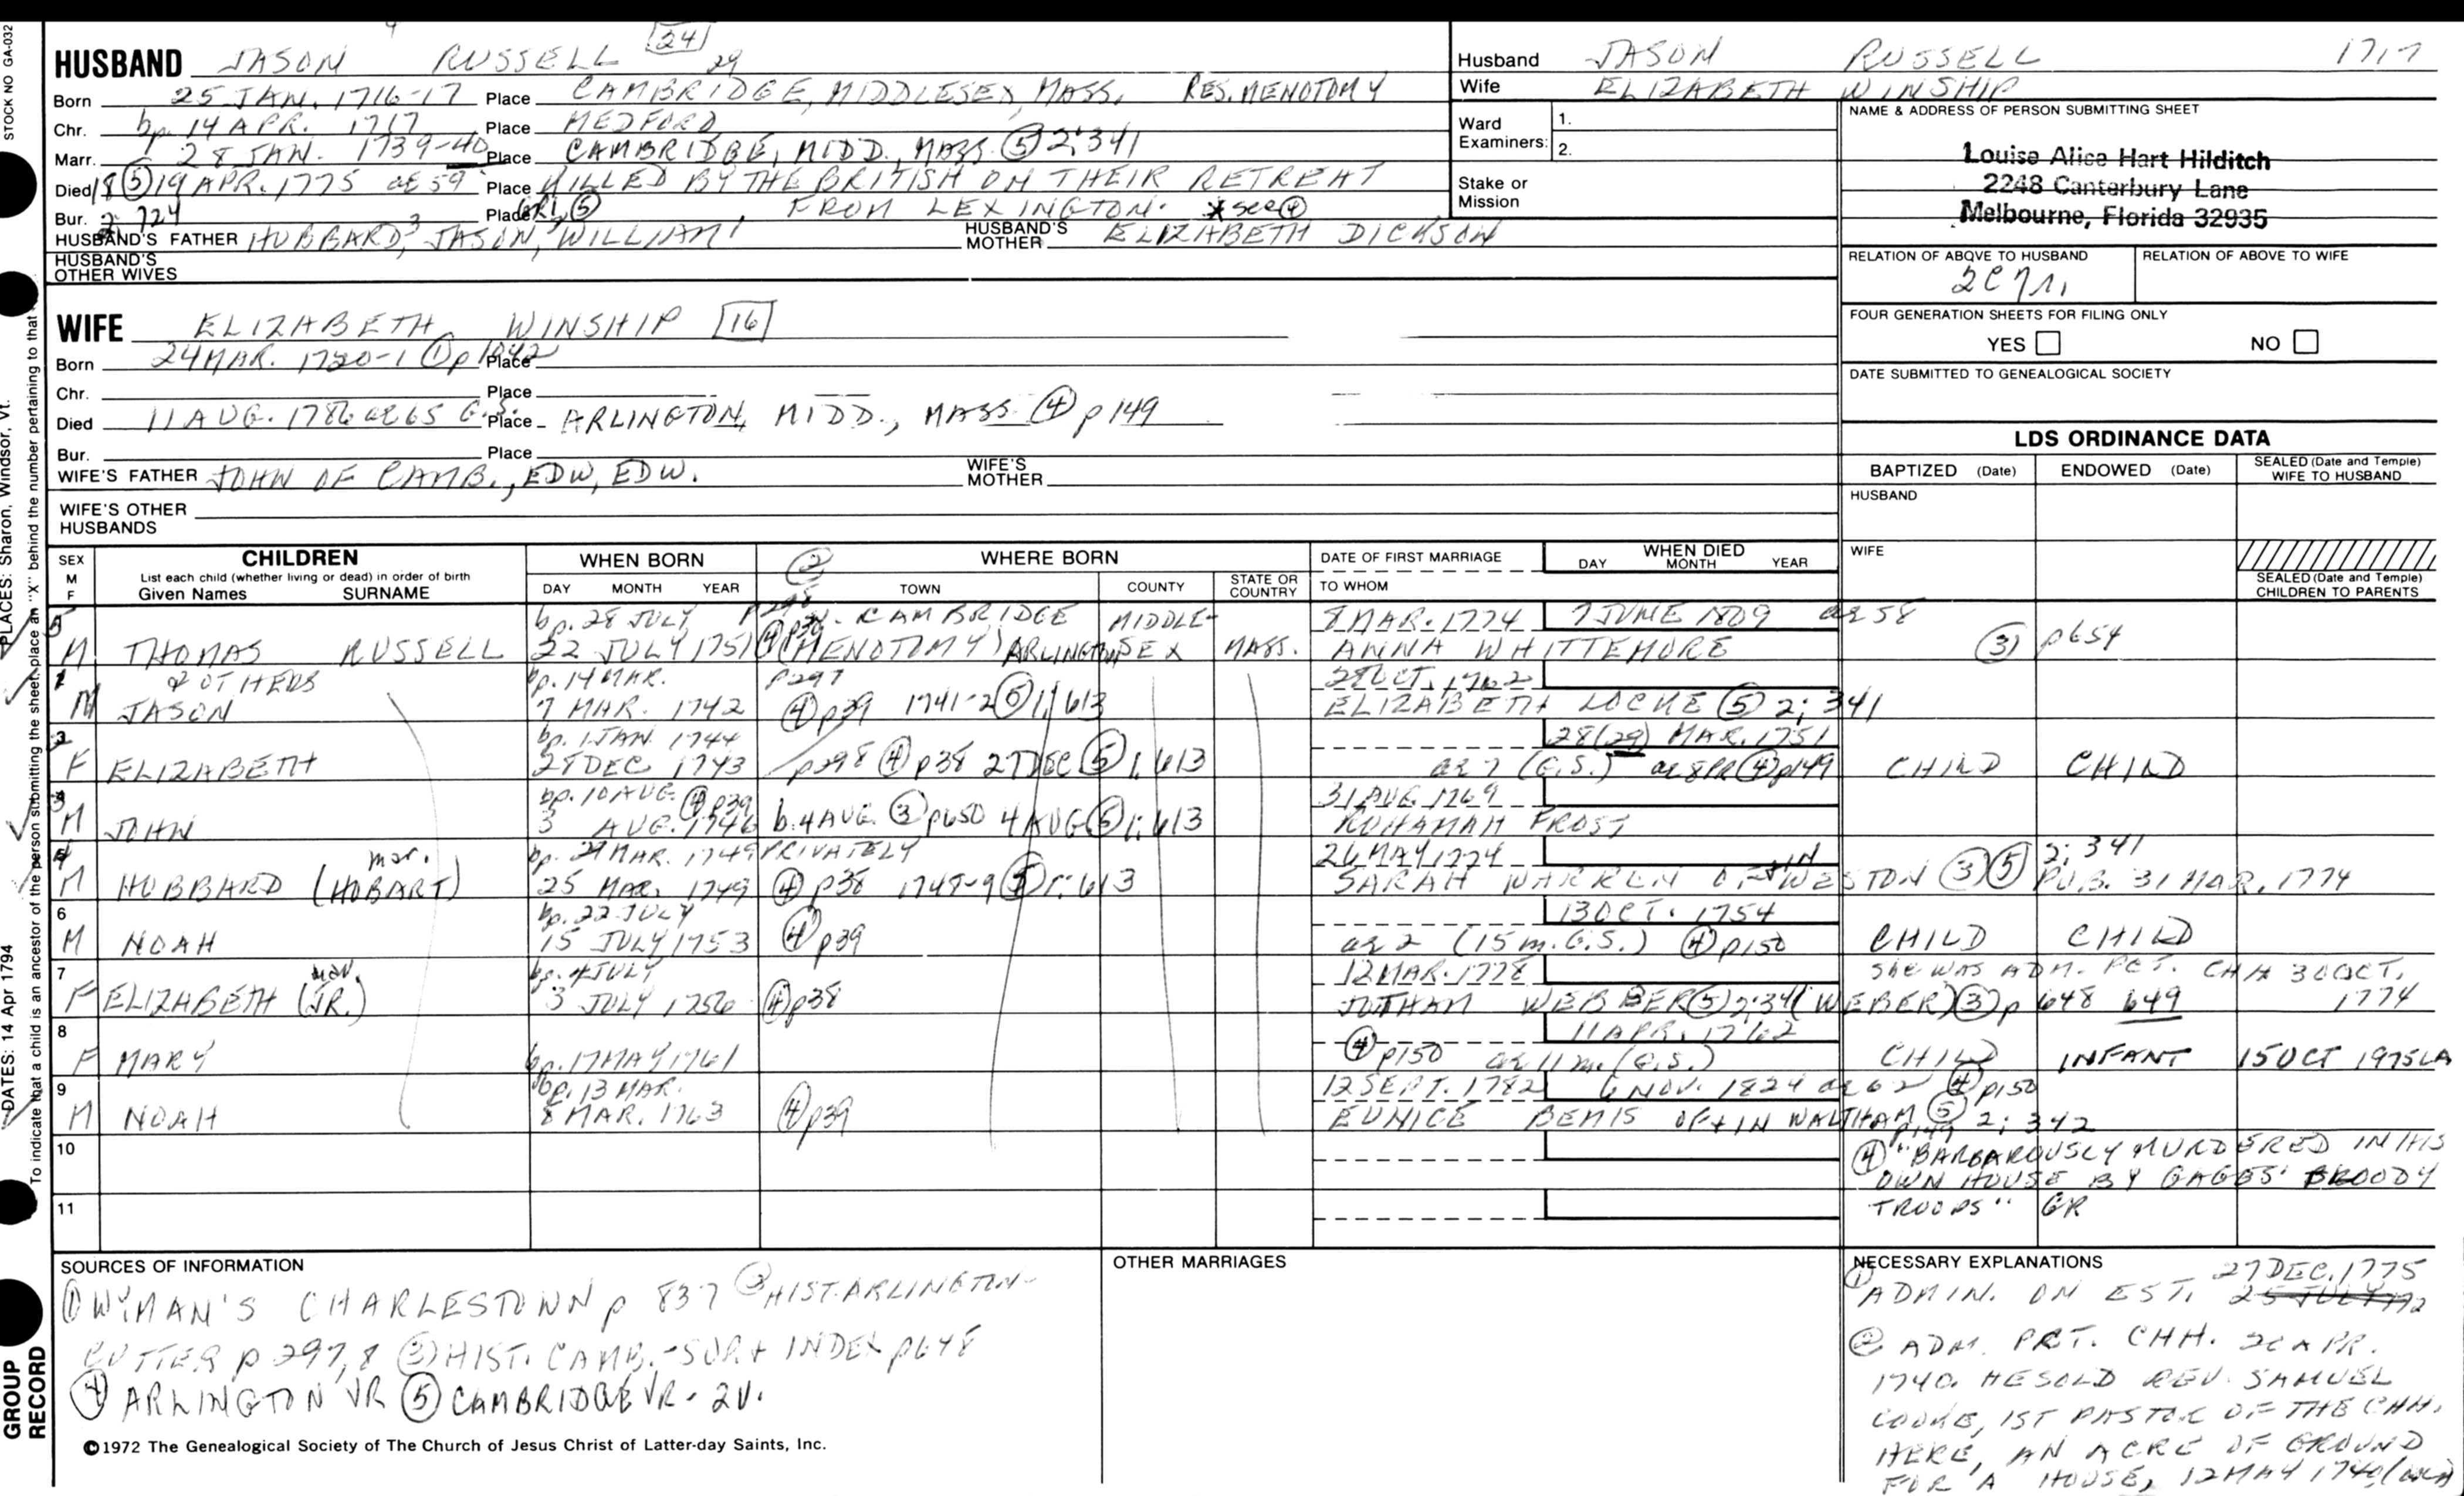 STOCK NO GA-032
HUSBAND JASON RUSSELL 24
29
Born 25 JAN. 1716-17 Place CAMBRIDGE, MIDDLESEX, MASS. RES. MENOTOMY
Chr. bp. 14 APR. 1717 Place MEDFORD
Marr. 28 JAN. 1739-40 Place CAMBRIDGE, MIDD., MASS. ⑤ 2:341
Died ⑤ 19 APR. 1775 ae 59 Place KILLED BY THE BRITISH ON THEIR RETREAT
Bur. 2:724 Place GR1, ⑤ FROM LEXINGTON. * see ④
HUSBAND'S FATHER HUBBARD, JASON, WILLIAM HUSBAND'S MOTHER ELIZABETH DICKSON
HUSBAND'S OTHER WIVES
WIFE ELIZABETH WINSHIP 16
Born 24 MAR. 1720-1 ① p1042 Place
Chr. Place
Died 11 AUG. 1786 ae 65 G.S. Place ARLINGTON, MIDD., MASS ④ p149
Bur. Place
WIFE'S FATHER JOHN OF CAMB., EDW, EDW. WIFE'S MOTHER
WIFE'S OTHER HUSBANDS
Husband JASON RUSSELL 1717
Wife ELIZABETH WINSHIP
Ward Examiners: 1.
2.
Stake or Mission
NAME & ADDRESS OF PERSON SUBMITTING SHEET
Louise Alice Hart Hilditch
2248 Canterbury Lane
Melbourne, Florida 32935
RELATION OF ABOVE TO HUSBAND RELATION OF ABOVE TO WIFE
FOUR GENERATION SHEETS FOR FILING ONLY
YES NO
DATE SUBMITTED TO GENEALOGICAL SOCIETY
LDS ORDINANCE DATA
BAPTIZED (Date) ENDOWED (Date) SEALED (Date and Temple) WIFE TO HUSBAND
HUSBAND
WIFE
SEALED (Date and Temple) CHILDREN TO PARENTS
SEX M F CHILDREN WHEN BORN WHERE BORN DATE OF FIRST MARRIAGE WHEN DIED
List each child (whether living or dead) in order of birth
Given Names SURNAME DAY MONTH YEAR TOWN COUNTY STATE OR COUNTRY TO WHOM DAY MONTH YEAR
②
5 bp. 28 JULY p298 CAMBRIDGE MIDDLE- 8 MAR. 1774 7 JUNE 1809 ae 58
M THOMAS RUSSELL 22 JULY 1751 ④ p39 (MENOTOMY) ARLINGTON SEX MASS. ANNA WHITTEMORE ③ p654
1 & OTHERS bp. 14 MAR. p297 28 OCT. 1762
M JASON 7 MAR. 1742 ④ p39 1741-2 ⑤ 1: 613 ELIZABETH LOCKE ⑤ 2; 341
2 bp. 1 JAN. 1744 28 (29) MAR. 1751
F ELIZABETH 28 DEC 1743 p298 ④ p38 27 DEC ⑤ 1; 613 ae 7 (G.S.) ae 8 PR ④ p149 CHILD CHILD
3 bp. 10 AUG. ④ p39 31 AUG 1769
M JOHN 3 AUG. 1746 b. 4 AUG. ③ p650 4 AUG ⑤ 1; 613 RUHAMAH FROST
4 mar. bp. 27 MAR. 1749 PRIVATELY 26 MAY 1774 2; 341
M HUBBARD (HOBART) 25 MAR. 1749 ④ p38 1748-9 ⑤ 1: 613 SARAH WARREN OF + IN WESTON ③ ⑤ PUB. 31 MAR. 1774
6 bp. 22 JULY 13 OCT. 1754
M NOAH 15 JULY 1753 ④ p39 ae 2 (15 m. G.S.) ④ p150 CHILD CHILD
7 mar. bp. 4 JULY 12 MAR. 1778 SHE WAS ADM. PCT. CHH 30 OCT.
F ELIZABETH (JR.) 3 JULY 1756 ④ p38 JOTHAM WEBBER ⑤ 2:341 (WEBER) ③ p 648 649 1774
8 11 APR. 1762
F MARY bp. 17 MAY 1761 ④ p150 ae 11 m. (G.S.) CHILD INFANT 15 OCT 1975 LA
9 bp. 13 MAR. 12 SEPT. 1782 6 NOV. 1824 ae 62 ④ p150
M NOAH 8 MAR. 1763 ④ p39 EUNICE BEMIS OF + IN WALTHAM ⑤ 2; 342
10
11
p149
④ "BARBAROUSLY MURDERED IN HIS
OWN HOUSE BY GAGES' BLOODY
TROOPS" GR
SOURCES OF INFORMATION
① WYMAN'S CHARLESTOWN p 837 ② HIST. ARLINGTON-
CUTTER p 297,8 ③ HIST. CAMB.-SUP + INDEX p648
④ ARLINGTON VR ⑤ CAMBRIDGE VR - 2V.
OTHER MARRIAGES
NECESSARY EXPLANATIONS
① ADMIN. ON EST. 27 DEC. 1775
② ADM. PRT. CHH. 20 APR.
1740. HE SOLD REV. SAMUEL
COOKE, 1ST PASTOR OF THE CHH.
HERE, AN ACRE OF GROUND
FOR A HOUSE, 12 MAY 1740
©1972 The Genealogical Society of The Church of Jesus Christ of Latter-day Saints, Inc.
GROUP RECORD
DATES: 14 Apr 1794
PLACES: Sharon, Windsor, Vt.
To indicate that a child is an ancestor of the person submitting the sheet, place an "X" behind the number pertaining to that